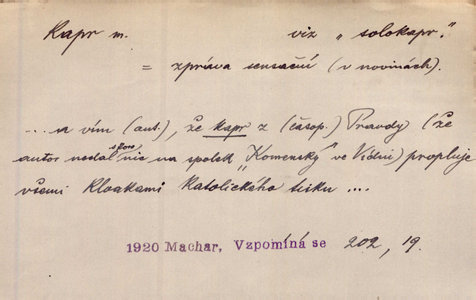 Kapr m. viz „solokapr."
= zpráva sensační (v novinách).
... a vím (aut.), že kapr z (časop.) Pravdy (že
autor nedal skoro nic na spolek „Komenský" ve Vídni) propluje
všemi kloakami katolického tisku ...
1920 Machar, Vzpomíná se 202, 19.